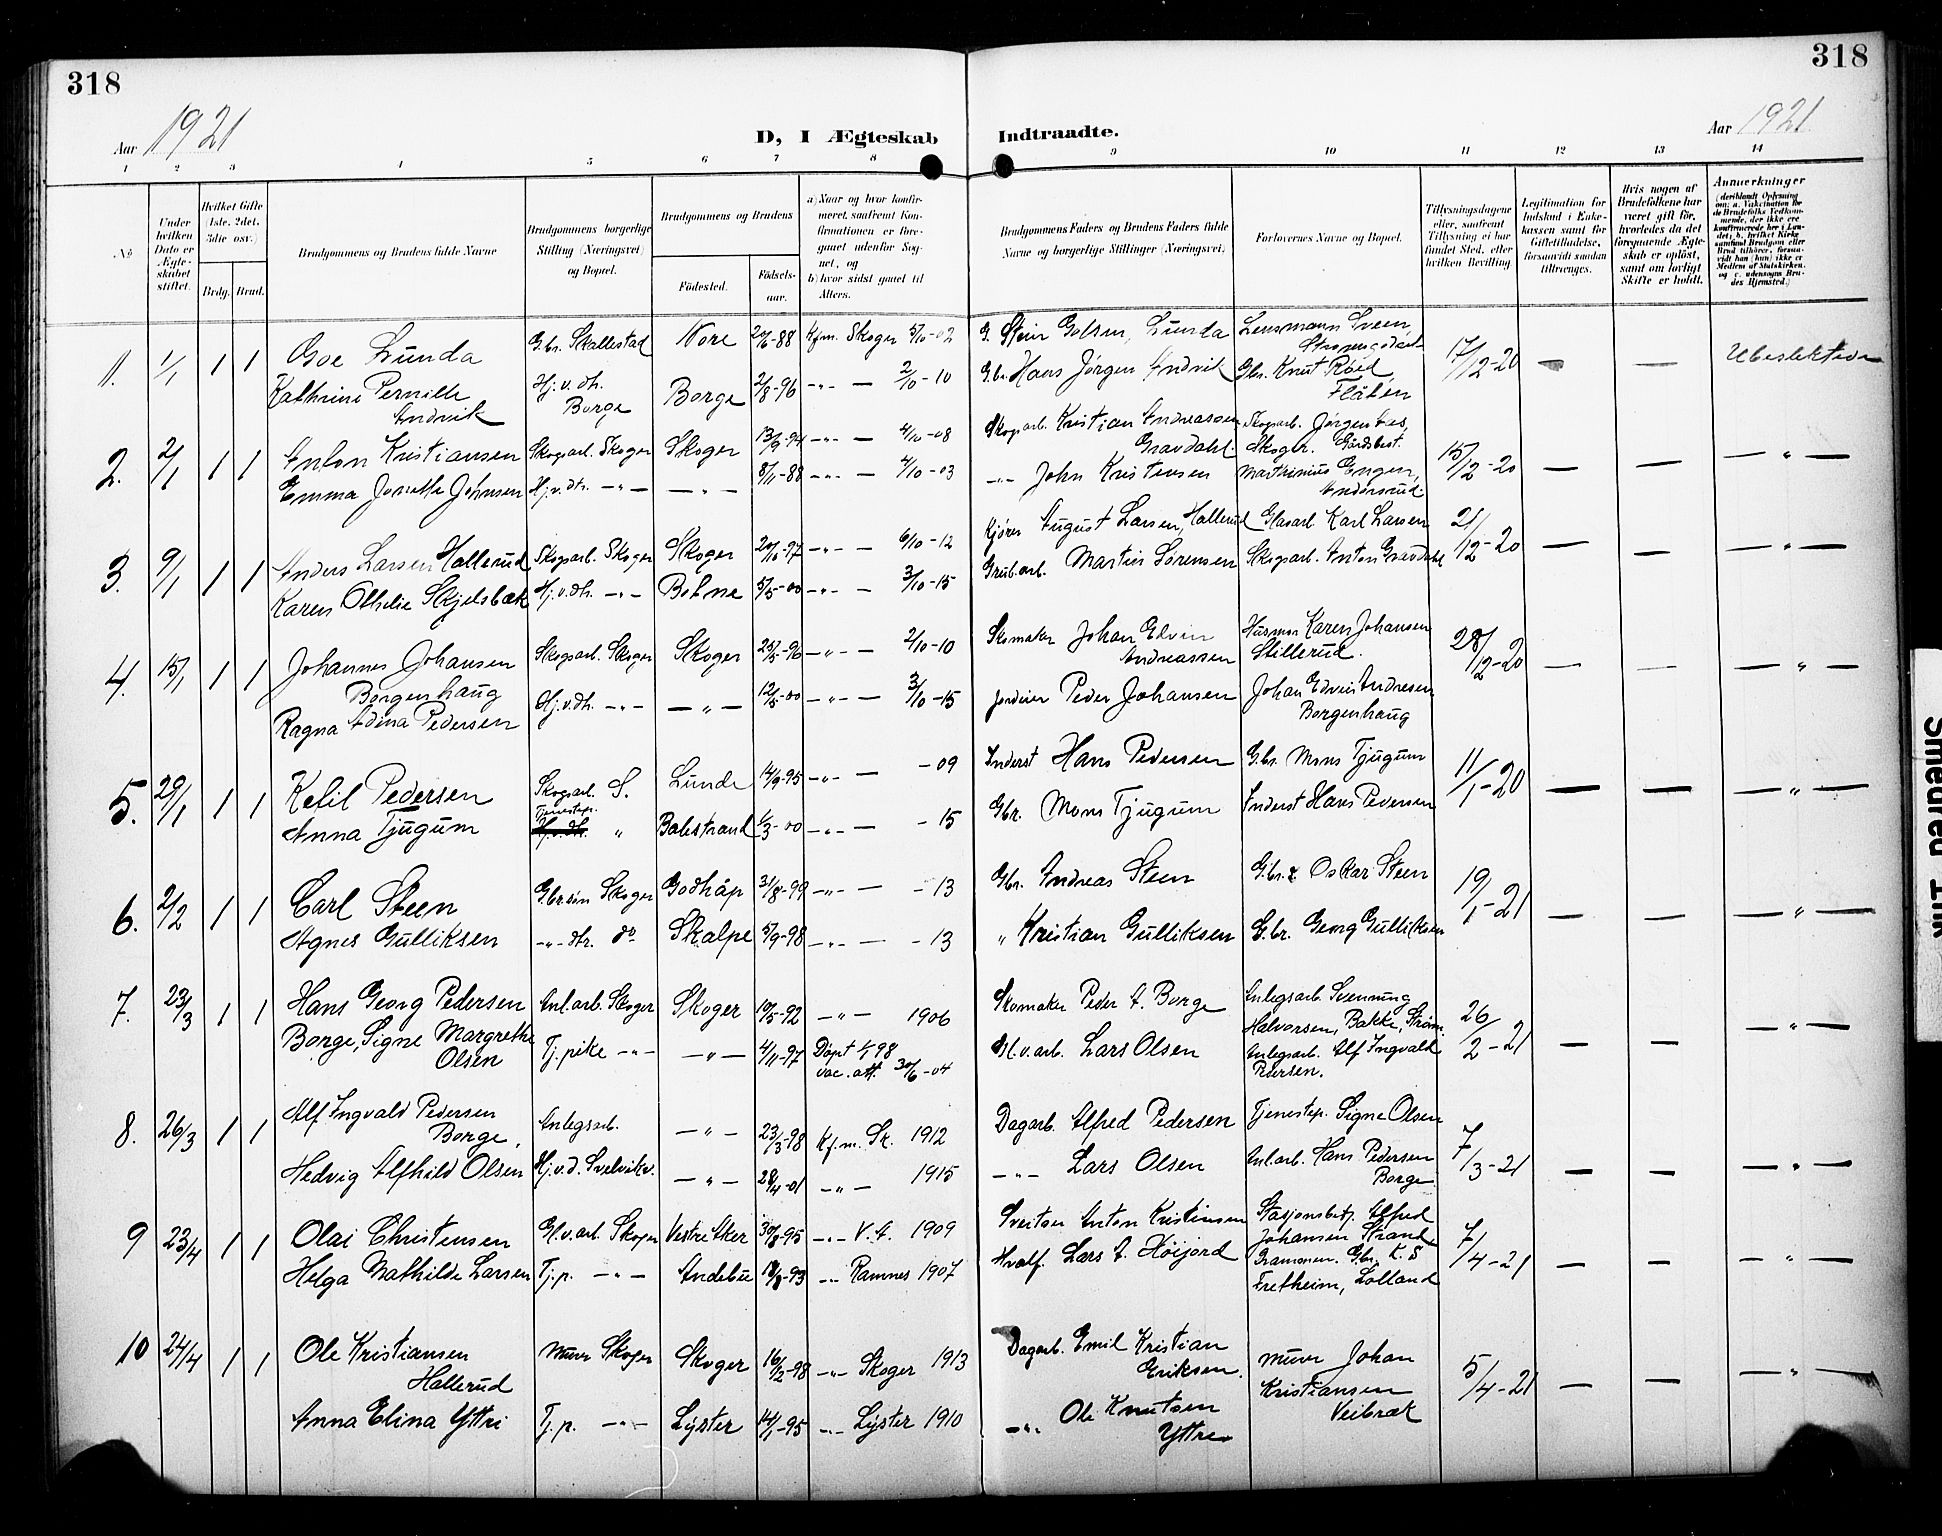 318
318
Aar 1921
D, I Ægteskab Indtraadte.
Aar 1921
1 2 3 4 5 6 7 8 9 10 11 12 13 14
No.
Under hvilken Dato er Ægteskabet stiftet.
Hvilket Gifte (1ste, 2det, 3die osv.)
Brdg. Brud.
Brudgommens og Brudens fulde Navne
Brudgommens borgerlige Stilling (Næringsvei) og Bopæl.
Brudgommens og Brudens
Födested.
Födselsaar.
a) Naar og hvor konfirmeret, saafremt Konfirmationen er foregaaet udenfor Sognet, og
b) hvor sidst gaaet til Alters.
Brudgommens Faders og Brudens Faders fulde Navne og borgerlige Stillinger (Næringsvei)
Forlovernes Navne og Bopæl.
Tillysningsdagene eller, saafremt Tillysning ei har fundet Sted, efter hvilken Bevilling
Legitimation for Indskud i Enkekassen samt for Giftetilladelse, forsaavidt saadan tiltrænges.
Hvis nogen af Brudefolkene har været gift før, hvorledes da det foregaaende Ægteskab er opløst, samt om lovligt Skifte er holdt.
Anmerkninger
(deriblandt Oplysning om: a. Vakcination for de Brudefolks Vedkommende, der ikke ere konfirmerede her i Landet; b. hvilket Kirke samfund Brudgom eller Brud tilhører, forsaavidt han (hun) ikke er Medlem af Statskirken, og c. udensogns Brudes Hjemsted.)
1. 1/1 1 1 Goe Lunda Gbr. Skallestad Nore 20/6-88 Kfm. Skoger 5/10-02 G. Stein Golsen, Lunda Lensmann Sveen, 17/12-20 — — Ubeslektede
Kathrine Pernille Andvik Hj.v.dtr. Borge Borge 2/8-96 -"- — 2/10-10 Gbr. Hans Jörgen Andvik Gbr. Knut Röed, Flåten
2. 2/1 1 1 Anton Kristiansen Skogsarb. Skoger Skoger 13/9-94 -"- — 4/10-08 Skogsarb. Kristian Andreassen Gravdahl. Skogsarb. Jörgen Skoger. Gårdbest. 15/12-20 — — — " —
Emma Jonette Johnsen Hj.v.dtr. -"- — " — 8/11-88 -"- — 4/10-03 -"- John Kristensen Marthinius Engen, Andorsrud
3. 9/1 1 1 Anders Larsen Hallerud Skogsarb. Skoger Skoger 20/10-97 -"- — 6/10-12 Kjörer August Larsen, Hallerud Glasarb. Karl Larsen 21/12-20 — — — " —
Karen Othelie Skjelsbæk Hj.v.dtr. -"- Botne 5/5-00 -"- — 3/10-15 Grubarb. Martin Sörensen Skogsarb. Anton Gravdahl
4. 15/1 1 1 Johannes Johansen Borgenhaug Skogsarb. Skoger Skoger 25/5-96 -"- — 2/10-10 Skomaker Johan Edvin Andreassen Husmor Karen Johansen Stillerud. 28/12-20 — — — " —
Ragna Adina Pedersen Hj.v.dtr. -"- — " — 12/5-00 -"- — 3/10-15 Jordeier Peder Johansen Johan Edvin Andresen Borgenhaug
5. 29/1 1 1 Ketil Pedersen Skogsarb. S. Lunde 14/9-95 -"- — -09 Inderst Hans Pedersen Gbr. Mons Tjugum 11/1-20 — — — " —
Anna Tjugum Tjenestep. " Balestrand 1/3-00 -"- — -15 Gbr. Mons Tjugum Inderst Hans Pedersen
6. 2/2 1 1 Carl Steen Gbr.sön Skoger Godhåp 31/8-99 -"- — -13 Gbr. Andreas Steen Gbr. Oskar Steen 19/1-21 — — — " —
Agnes Gulliksen -"- dtr. do Skalpe 5/9-98 -"- — -13 " Kristian Gulliksen Gbr. Georg Gulliksen
7. 23/3 1 1 Hans Georg Pedersen Borge, Anl.arb. Skoger Skoger 10/5-92 -"- — 1906 Skomaker Peder A. Borge Anlegsarb. Svennung Halvorsen, Bakke, Ström. 26/2-21 — — — " —
Signe Margrethe Olsen Tj.pike -"- — " — 4/11-97 Döpt 1/1 98 vac. att. 30/6-04 Gl.v.arb. Lars Olsen Anlegsarb. Alf Ingvald Pedersen.
8. 26/3 1 1 Alf Ingvald Pedersen Borge, Anlegsarb. — " — 23/3-98 Kf.m. Sk. 1912 Dagarb. Alfred Pedersen Tjenestep. Signe Olsen 7/3-21 — — — " —
Hedvig Alfhild Olsen Hj.v.d. Svelvikv. — " — 28/4-01 -"- — 1915 -"- Lars Olsen Anl.arb. Hans Pedersen Borge
9 23/4 1 1 Olai Christensen Gl.v.arb. Skoger Vestre Aker 30/8-95 -"- V.A. 1909 Anton Kristensen Stasjonsbetj. Alfred Johansen Strand, 7/4-21 — — — " —
Helga Mathilde Larsen Tj.p. -"- Andebu 18/8-93 -"- Ramnes 1907 Hvalf. Lars A. Höijord Dramenen. Gbr. K. S Fretheim, Lolland
10 24/4 1 1 Ole Kristiansen Hallerud Murer Skoger Skoger 16/2-98 -"- Skoger 1913 Dagarb. Emil Kristian Eriksen. Murer Johan Kristiansen Veibræk 5/4-21 — — — " —
Anna Elina Yttri Tj.p. -"- Lyster 14/1-95 -"- Lyster 1910 -"- Ole Knutsen Yttre